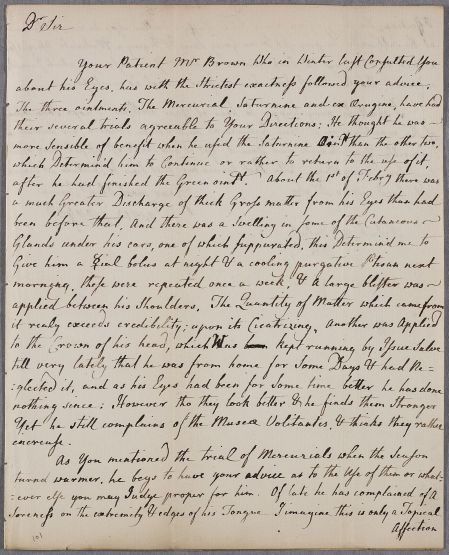 Dr Sir
Your Patient Mr Brown who in Winter last Consulted You
about his Eyes, has with the Strictest exactness followed your advice.
The three ointments, The Mercurial, Saturnine and ex Ærugine, have had
their several trials agreeable to Your Directions: He thought he was
more Sensible of benefit when he used the Saturnine Ointt than the other two,
which Determin'd him to Continue or rather to return to the use of it,
after he had finished the Green ointt. About the 1st of Febry there was
a much Greater Discharge of thick Gross matter from his Eyes than had
been before that, And there was a Swelling in some of the Cutaneous
Glands under his ears, one of which Suppurated. this Determin'd me to
Give him a bolus at night & a cooling purgative Ptisan next
morning, these were repeated once a week, & A large blister was
applied between his Shoulders. The Quantity of Matter which came from
it realy exceeds credibility: upon its Cicatrizing, Another was Applied
to the Crown of his head, which Was kept running by Issue Salve
till very lately that he was from home for Some Days & had Ne-
-glected it, and as his Eyes had been for Some time better he has done
nothing since: However tho they look better & he finds them Stronger
Yet he still complains of the Muscæ Volitantes, & thinks they rather
encrease.
As You mentioned the trial of Mercurials when the Season
turned warmer, he begs to have your advice as to the Use of them or what-
-ever else you may Judge proper for him. Of late he has complained of A
Soreness on the extremity & edges of his Tongue I imagine this is only a Topical
Affection
101